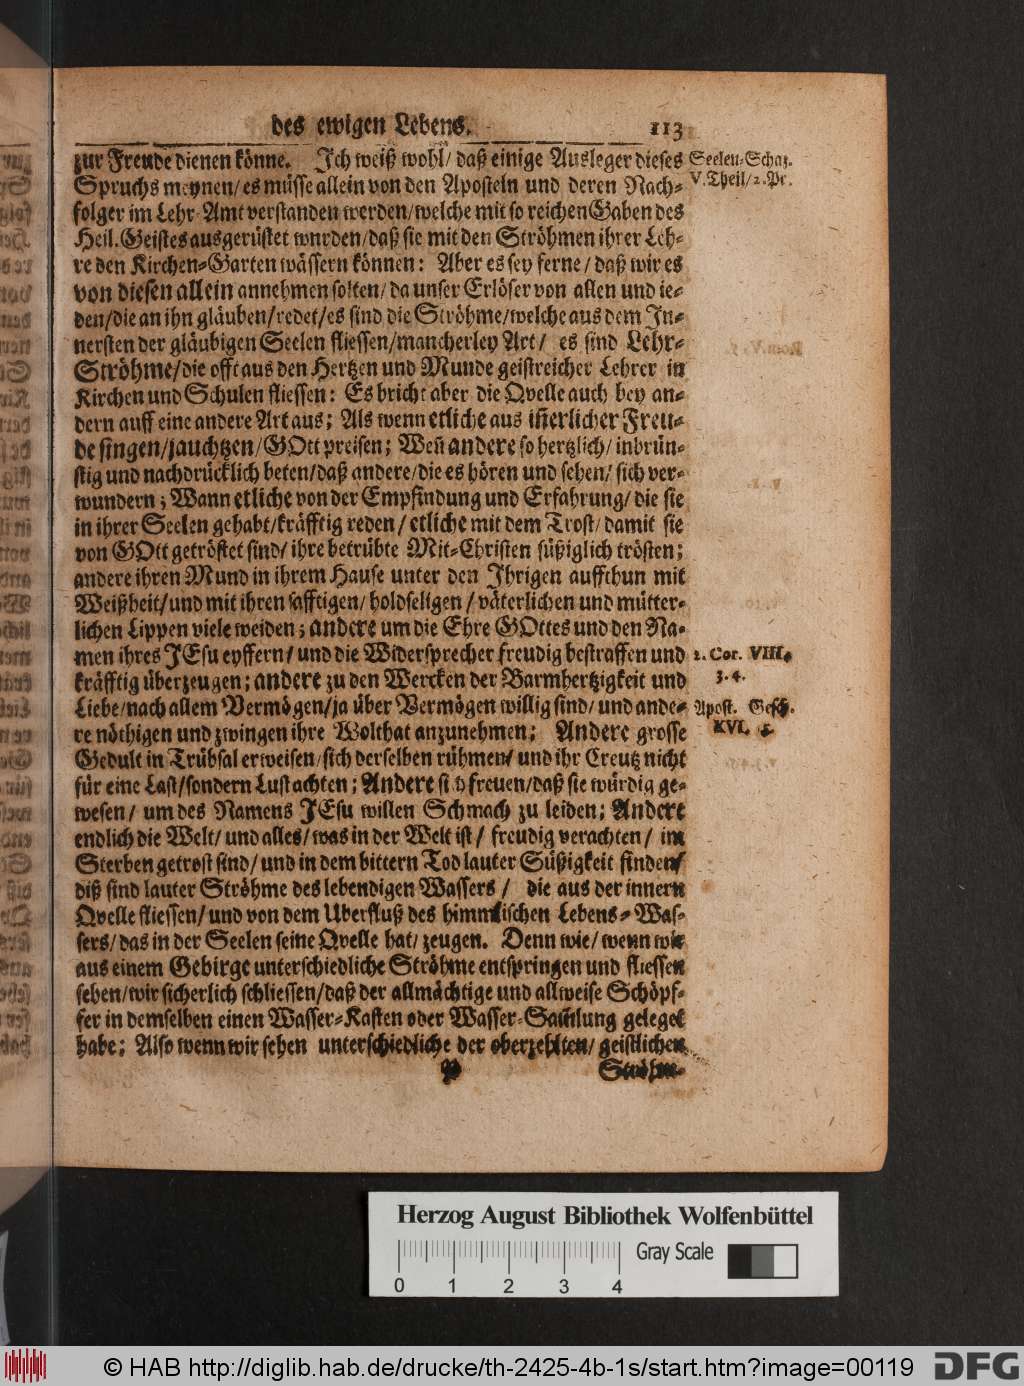 des ewigen Lebens. 113
zur Freude dienen könne. Ich weiß wohl/ daß einige Ausleger dieses
Seelen-Schaz.
Spruchs meynen/ es müsse allein von den Aposteln und deren Nach-
V. Theil/ 2. Pr.
folger im Lehr-Amt verstanden werden/ welche mit so reichen Gaben des
Heil. Geistes ausgerüstet wurden/ daß sie mit den Ströhmen ihrer Leh-
re den Kirchen-Garten wässern können: Aber es sey ferne/ daß wir es
von diesen allein annehmen solten/ da unser Erlöser von allen und ie-
den/ die an ihn gläuben/ redet/ es sind die Ströhme/ welche aus dem In-
nersten der gläubigen Seelen fliessen/ mancherley Art/ es sind Lehr-
Ströhme/ die offt aus den Hertzen und Munde geistreicher Lehrer in
Kirchen und Schulen fliessen: Es bricht aber die Qvelle auch bey an-
dern auff eine andere Art aus; Als wenn etliche aus iñerlicher Freu-
de singen/ jauchtzen/ GOtt preisen; Weñ andere so hertzlich/ inbrün-
stig und nachdrücklich beten/ daß andere/ die es hören und sehen/ sich ver-
wundern; Wann etliche von der Empfindung und Erfahrung/ die sie
in ihrer Seelen gehabt/ kräfftig reden/ etliche mit dem Trost/ damit sie
von GOtt getröstet sind/ ihre betrübte Mit-Christen süßiglich trösten;
andere ihren Mund in ihrem Hause unter den Ihrigen auffthun mit
Weißheit/ und mit ihren safftigen/ holdseligen/ väterlichen und mütter-
lichen Lippen viele weiden; andere um die Ehre GOttes und den Na-
men ihres JEsu eyffern/ und die Widersprecher freudig bestraffen und
2. Cor. VIII,
kräfftig überzeugen; andere zu den Wercken der Barmhertzigkeit und
3. 4.
Liebe/ nach allem Vermögen/ ja über Vermögen willig sind/ und ande-
Apost. Gesch.
re nöthigen und zwingen ihre Wolthat anzunehmen; Andere grosse
XVI,
Gedult in Trübsal erweisen/ sich derselben rühmen/ und ihr Creutz nicht
für eine Last/ sondern Lust achten; Andere sich freuen/ daß sie würdig ge-
wesen/ um des Namens JEsu willen Schmach zu leiden; Andere
endlich die Welt/ und alles/ was in der Welt ist/ freudig verachten/ im
Sterben getrost sind/ und in dem bittern Tod lauter Süßigkeit finden/
diß sind lauter Ströhme des lebendigen Wassers/ die aus der innern
Qvelle fliessen/ und von dem Uberfluß des himmlischen Lebens-Was-
sers/ das in der Seelen seine Qvelle hat/ zeugen. Denn wie/ wenn wir
aus einem Gebirge unterschiedliche Ströhme entspringen und fliessen
sehen/ wir sicherlich schliessen/ daß der allmächtige und allweise Schöpf-
fer in demselben einen Wasser-Kasten oder Wasser-Sam̃lung geleget
habe; Also wenn wir sehen unterschiedliche der oberzehlten/ geistlichen
P Ströhm-
Herzog August Bibliothek Wolfenbüttel
Gray Scale
0 1 2 3 4
© HAB http://diglib.hab.de/drucke/th-2425-4b-1s/start.htm?image=00119
DFG